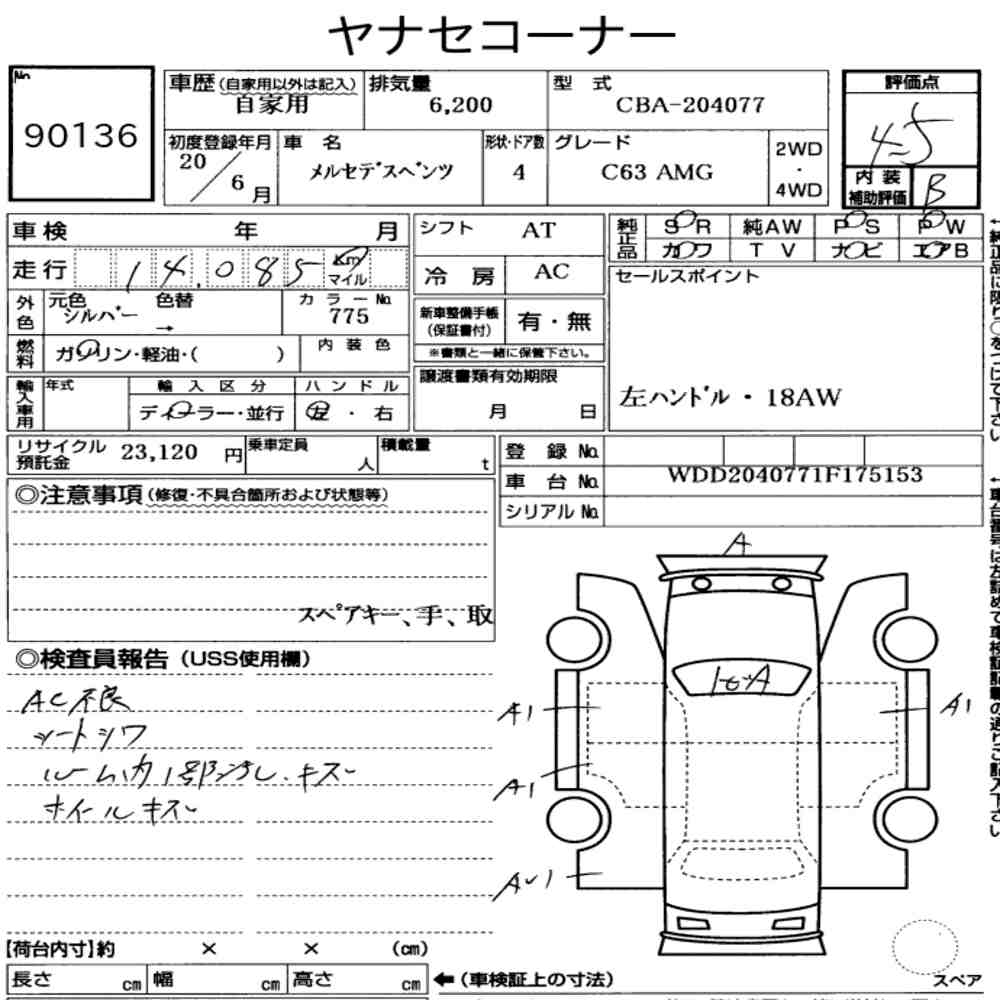 ヤナセコーナー
No. 90136
車歴(自家用以外は記入) 自家用
排気量 6,200
型 式 CBA-204077
評価点 4.5
初度登録年月 20/6月
車 名 メルセデスベンツ
形状・ドア数 4
グレード C63 AMG
2WD・4WD
内装補助評価 B
車検 年 月
シフト AT
純正品 SR 純AW PS PW
カワ TV ナビ エアB
走行 14,085 Km マイル
冷房 AC
セールスポイント
外色 元色 シルバー 色替 → カラーNo. 775
新車整備手帳(保証書付) 有・無
※書類と一緒に保管下さい。
燃料 ガソリン・軽油・( ) 内装色
輸入車用 年式 輸入区分 ディーラー・並行 ハンドル 左・右
譲渡書類有効期限 月 日
左ハンドル・18AW
リサイクル預託金 23,120 円
乗車定員 人
積載量 t
登録 No.
車台 No. WDD2040771F175153
シリアル No.
◎注意事項(修復・不具合箇所および状態等)
スペアキー、手、取
◎検査員報告(USS使用欄)
AC不良
シートシワ
ルーム内1部汚れ.キズ
ホイールキズ
A
A1
A1
A1
【荷台内寸】約 × × (cm)
長さ cm 幅 cm 高さ cm
←(車検証上の寸法)
スペア
←純正品に限り○をつけて下さい